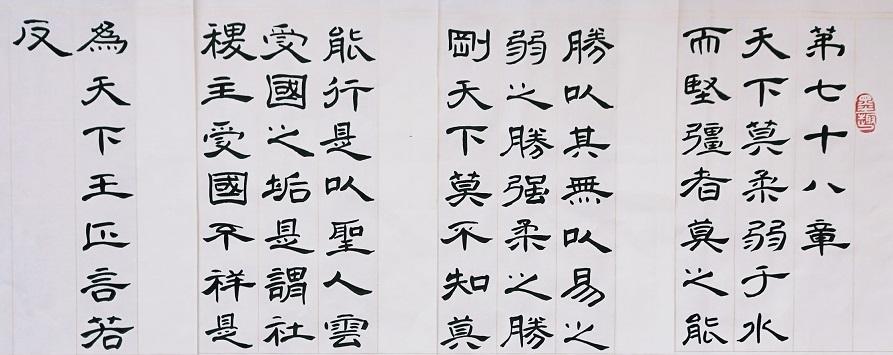 第七十八章
天下莫柔弱于水
而堅彊者莫之能
勝以其無以易之
弱之勝强柔之勝
剛天下莫不知莫
能行是以聖人雲
受國之垢是謂社
稷主受國不祥是
為天下王正言若
反